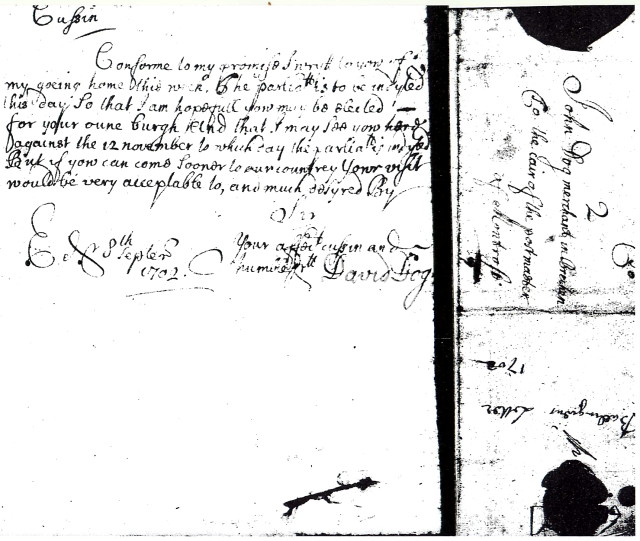 Cussin
Conforme to my promise I writ to yow of
my goeing home this wick, the parliatt is to be indyted
this day So that I am hopefull yow may be elected
for your oune burgh And that I may see yow here
against the 12 november to which day the parliatt is indyted
But if yow can come sooner to our countrey Your visit
would be very acceptable to, and much desyred By
Sir
Your affect cussin and
humble sertt David Dog
Edr 8th Septer
1702
John Dog merchant in Brechin
2
To the cair of the postmaster
of Montross
1702
Letter